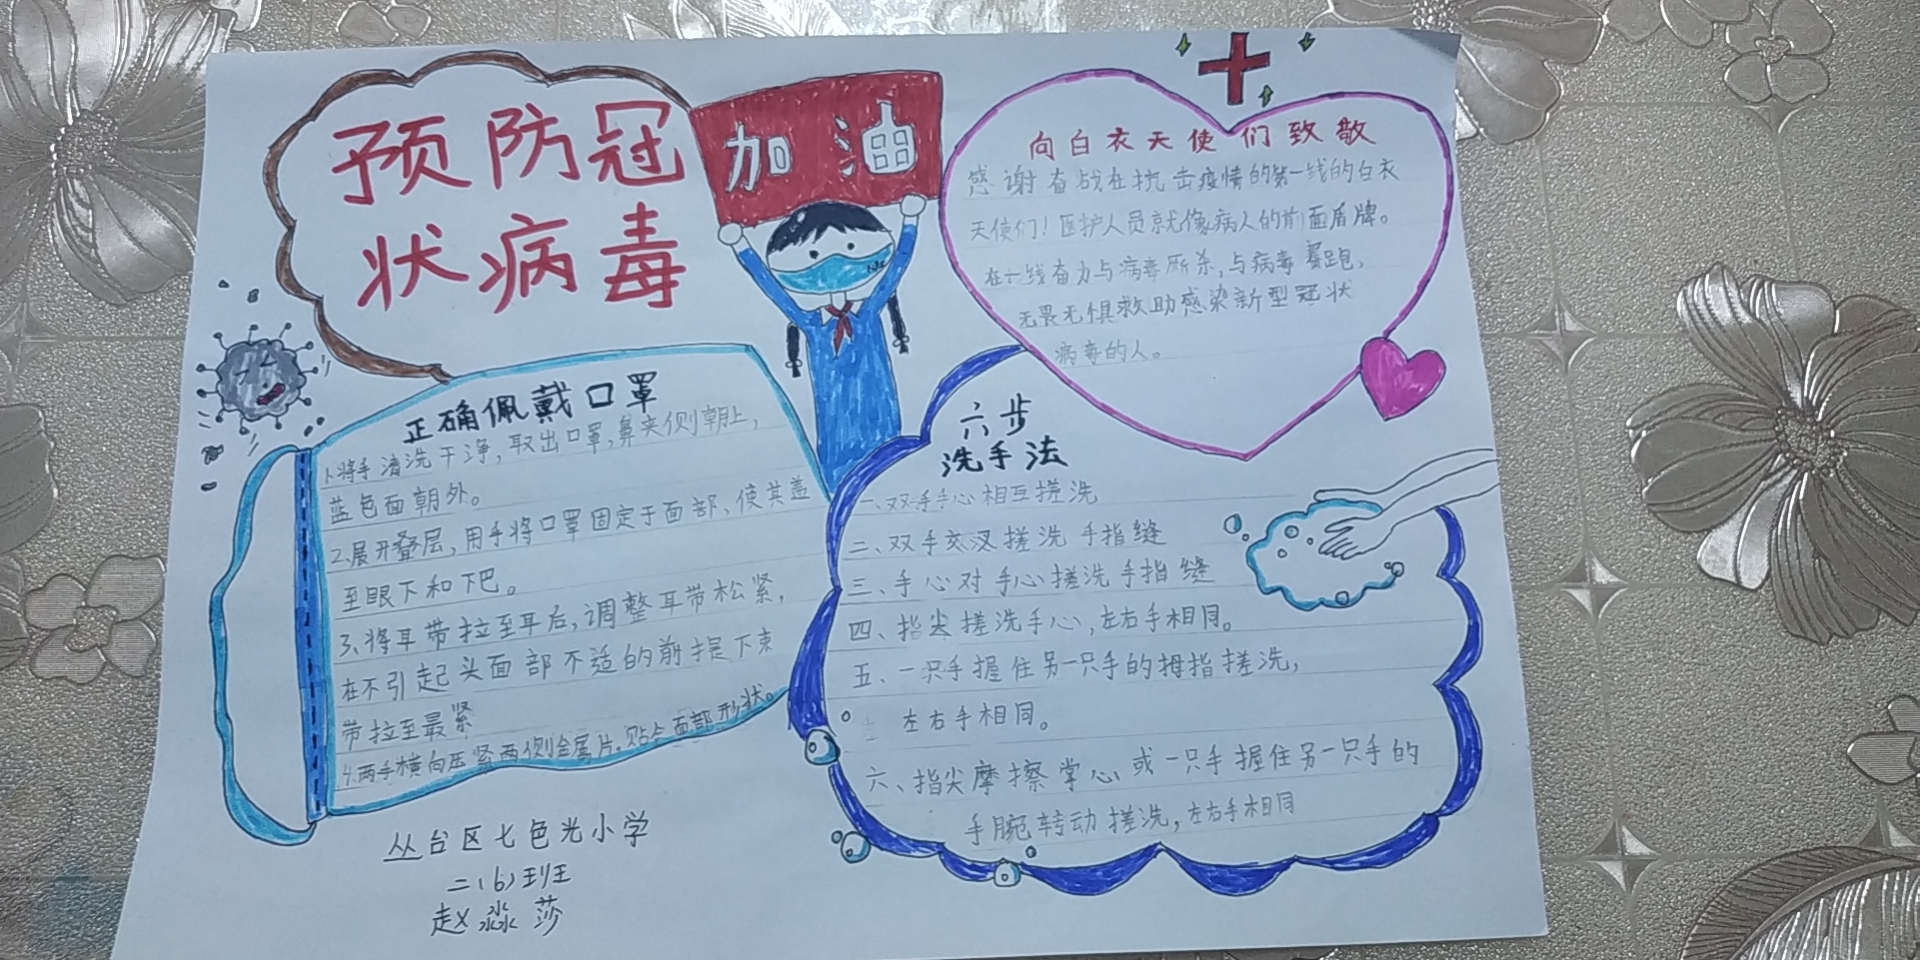 预防冠
状病毒
加油
向白衣天使们致敬
感谢奋战在抗击疫情的第一线的白衣
天使们！医护人员就像病人的前面盾牌。
在一线奋力与病毒厮杀，与病毒赛跑，
无畏无惧救助感染新型冠状
病毒的人。
正确佩戴口罩
1、将手清洗干净，取出口罩，鼻夹侧朝上，
蓝色面朝外。
2、展开叠层，用手将口罩固定于面部、使其盖
至眼下和下巴。
3、将耳带拉至耳后，调整耳带松紧，
在不引起头面部不适的前提下束
带拉至最紧
4、两手横向压紧两侧金属片，贴合面部形状。
六步
洗手法
一、双手手心相互搓洗
二、双手交叉搓洗手指缝
三、手心对手心搓洗手指缝
四、指尖搓洗手心，左右手相同。
五、一只手握住另一只手的拇指搓洗，
左右手相同。
六、指尖摩擦掌心或一只手握住另一只手的
手腕转动搓洗，左右手相同
丛台区七色光小学
二(6)班
赵淼莎